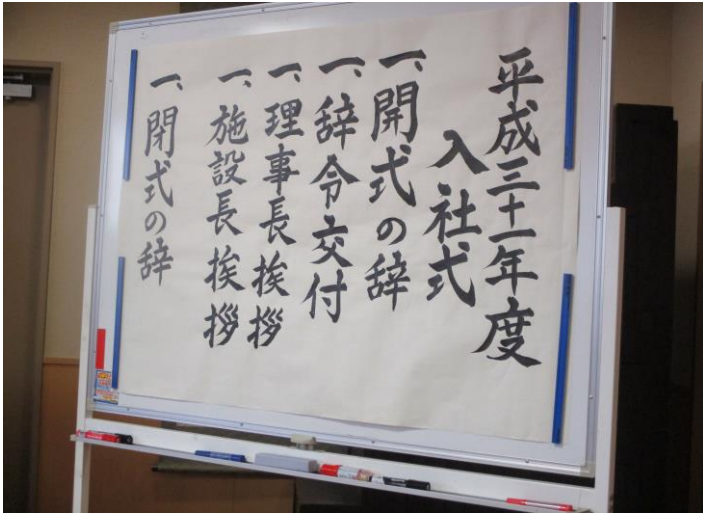 平成三十一年度
入社式
一、開式の辞
一、辞令交付
一、理事長挨拶
一、施設長挨拶
一、閉式の辞